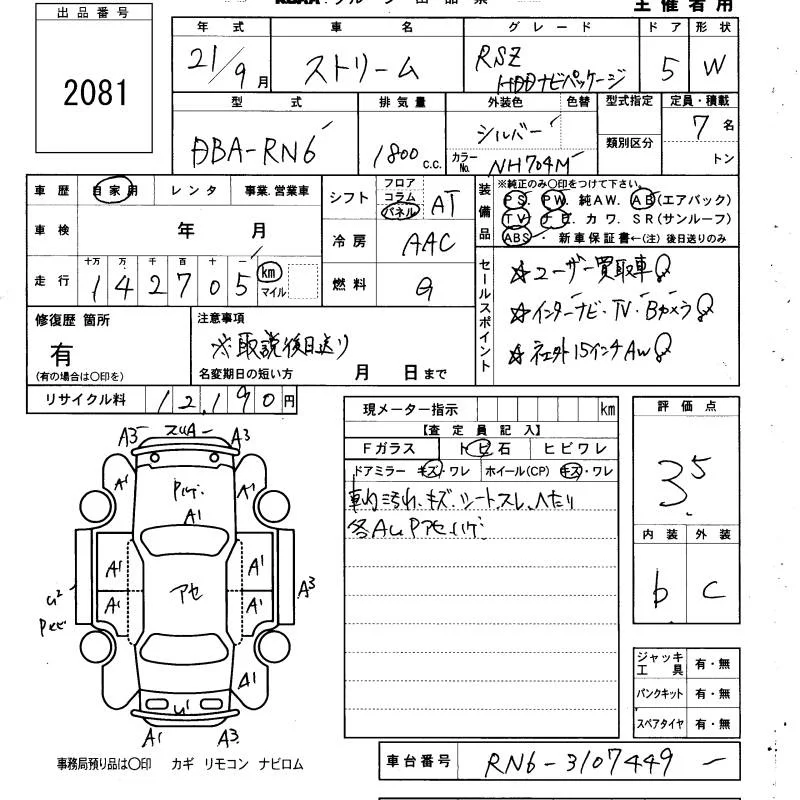 主催者用
出品番号
2081
年式 車名 グレード ドア 形状
21/9月 ストリーム RSZ HDDナビパッケージ 5 W
型式 排気量 外装色 色替 型式指定 定員・積載
DBA-RN6 1800c.c. シルバー 類別区分 7名
カラーNo. NH704M トン
車歴 自家用 レンタ 事業.営業車
車検 年 月
走行 十万 万 千 百 十 一
142705 km マイル
シフト フロア コラム パネル AT
冷房 AAC
燃料 G
装備品 ※純正のみ○印をつけて下さい。
PS. PW. 純AW. AB(エアバック)
TV. ナビ カワ. SR(サンルーフ)
ABS. 新車保証書←(注)後日送りのみ
セールスポイント
☆ユーザー買取車
☆インターナビ・TV・Bカメラ
☆社外15インチAW
修復歴 箇所
有
(有の場合は○印を)
注意事項
※取説後日送り
名変期日の短い方 月 日まで
リサイクル料 12,190円
現メーター指示 km
【査定員記入】
Fガラス トビ石 ヒビワレ
ドアミラー キズ・ワレ ホイール(CP) キズ・ワレ
車内汚れ、キズ、シートスレ、へたり
各AUPアセ、ハゲ
評価点
3.5
内装 外装
b C
ジャッキ工具 有・無
パンクキット 有・無
スペアタイヤ 有・無
A3 スリA A3
A1 Pハゲ. A1
A1
A1 アセ A1 A3
A1 A1
U2
A1
U1
A1 A3
事務局預り品は○印 カギ リモコン ナビロム
車台番号 RN6-3107449